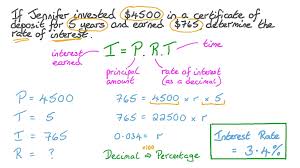 If Jennifer invested $4500 in a certificate of
deposit for 5 years and earned $765 determine the
rate of interest.
I = P.R.T
time
interest
earned
principal
amount
rate of interest
(as a decimal)
P = 4500
T = 5
I = 765
R = ?
765 = 4500 × r × 5
765 = 22500 r
0.034 = r
×100
Decimal ⇒ Percentage
Interest Rate
= 3.4%